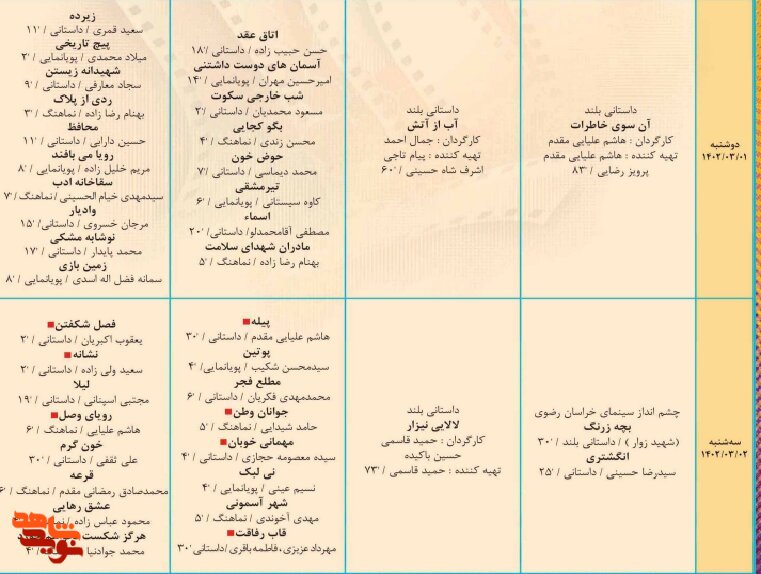 دوشنبه
۱۴۰۲/۰۳/۰۱
داستانی بلند
آن سوی خاطرات
کارگردان : هاشم علیایی مقدم
تهیه کننده : هاشم علیایی مقدم
پرویز رضایی / ۸۳'
داستانی بلند
آب از آتش
کارگردان : جمال احمد
تهیه کننده : پیام تاجی
اشرف شاه حسینی / ۶۰'
اتاق عقد
حسن حبیب زاده / داستانی / ۱۸'
آسمان های دوست داشتنی
امیرحسین مهران / پویانمایی / ۱۴'
شب خارجی سکوت
مسعود محمدیان / داستانی / ۲'
بگو کجایی
محسن زندی / نماهنگ / ۴'
حوض خون
محمد دیماسی / داستانی / ۷'
تیرمشقی
کاوه سیستانی / پویانمایی / ۶'
اسماء
مصطفی آقامحمدلو / داستانی / ۲۰'
مادران شهدای سلامت
بهنام رضا زاده / نماهنگ / ۵'
زیرده
سعید قمری / داستانی / ۱۱'
پیچ تاریخی
میلاد محمدی / پویانمایی / ۲'
شهیدانه زیستن
سجاد معارفی / داستانی / ۹'
ردی از پلاک
بهنام رضا زاده / نماهنگ / ۳'
محافظ
حسین دارابی / داستانی / ۱۱'
رویا می بافند
مریم خلیل زاده / پویانمایی / ۸'
سقاخانه ادب
سیدمهدی خیام الحسینی / نماهنگ / ۷'
وادیار
مرجان خسروی / داستانی / ۱۵'
نوشابه مشکی
محمد پایدار / داستانی / ۱۷'
زمین بازی
سمانه فضل اله اسدی / پویانمایی / ۸'
سه شنبه
۱۴۰۲/۰۳/۰۲
چشم انداز سینمای خراسان رضوی
بچه زرنگ
(شهید زوار) / داستانی بلند / ۳۰'
انگشتری
سیدرضا حسینی / داستانی / ۲۵'
داستانی بلند
لالایی نیزار
کارگردان : حمید قاسمی
حسین باکیده
تهیه کننده : حمید قاسمی / ۷۳'
پیله
هاشم علیایی مقدم / داستانی / ۳۰'
پوتین
سیدمحسن شکیب / پویانمایی / ۴'
مطلع فجر
محمدمهدی فکریان / داستانی / ۶'
جوانان وطن
حامد شیدایی / نماهنگ / ۵'
مهمانی خوبان
سیده معصومه حجازی / داستانی / ۴'
نی لبک
نسیم عینی / پویانمایی / ۴'
شهر آسمونی
مهدی آخوندی / نماهنگ / ۵'
قاب رفاقت
مهرداد عزیزی، فاطمه باقری / داستانی / ۳۰'
فصل شکفتن
یعقوب اکبریان / داستانی / ۲'
نشانه
سعید ولی زاده / داستانی / ۲'
لیلا
مجتبی اسپنانی / داستانی / ۱۹'
رویای وصل
هاشم علیایی / نماهنگ / ۶'
خون گرم
علی ثقفی / داستانی / ۳۰'
قرعه
محمدصادق رمضانی مقدم / نماهنگ / ۶
عشق رهایی
محمود عباس زاده /
هرگز شکست
محمد جوادنیا / ۴'
شاهد
نوید